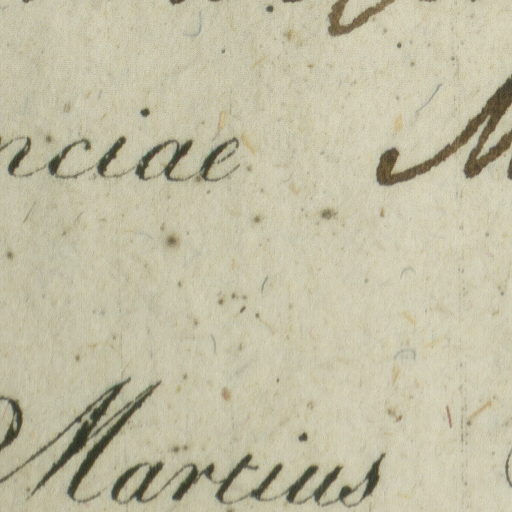 nciae M
Martius